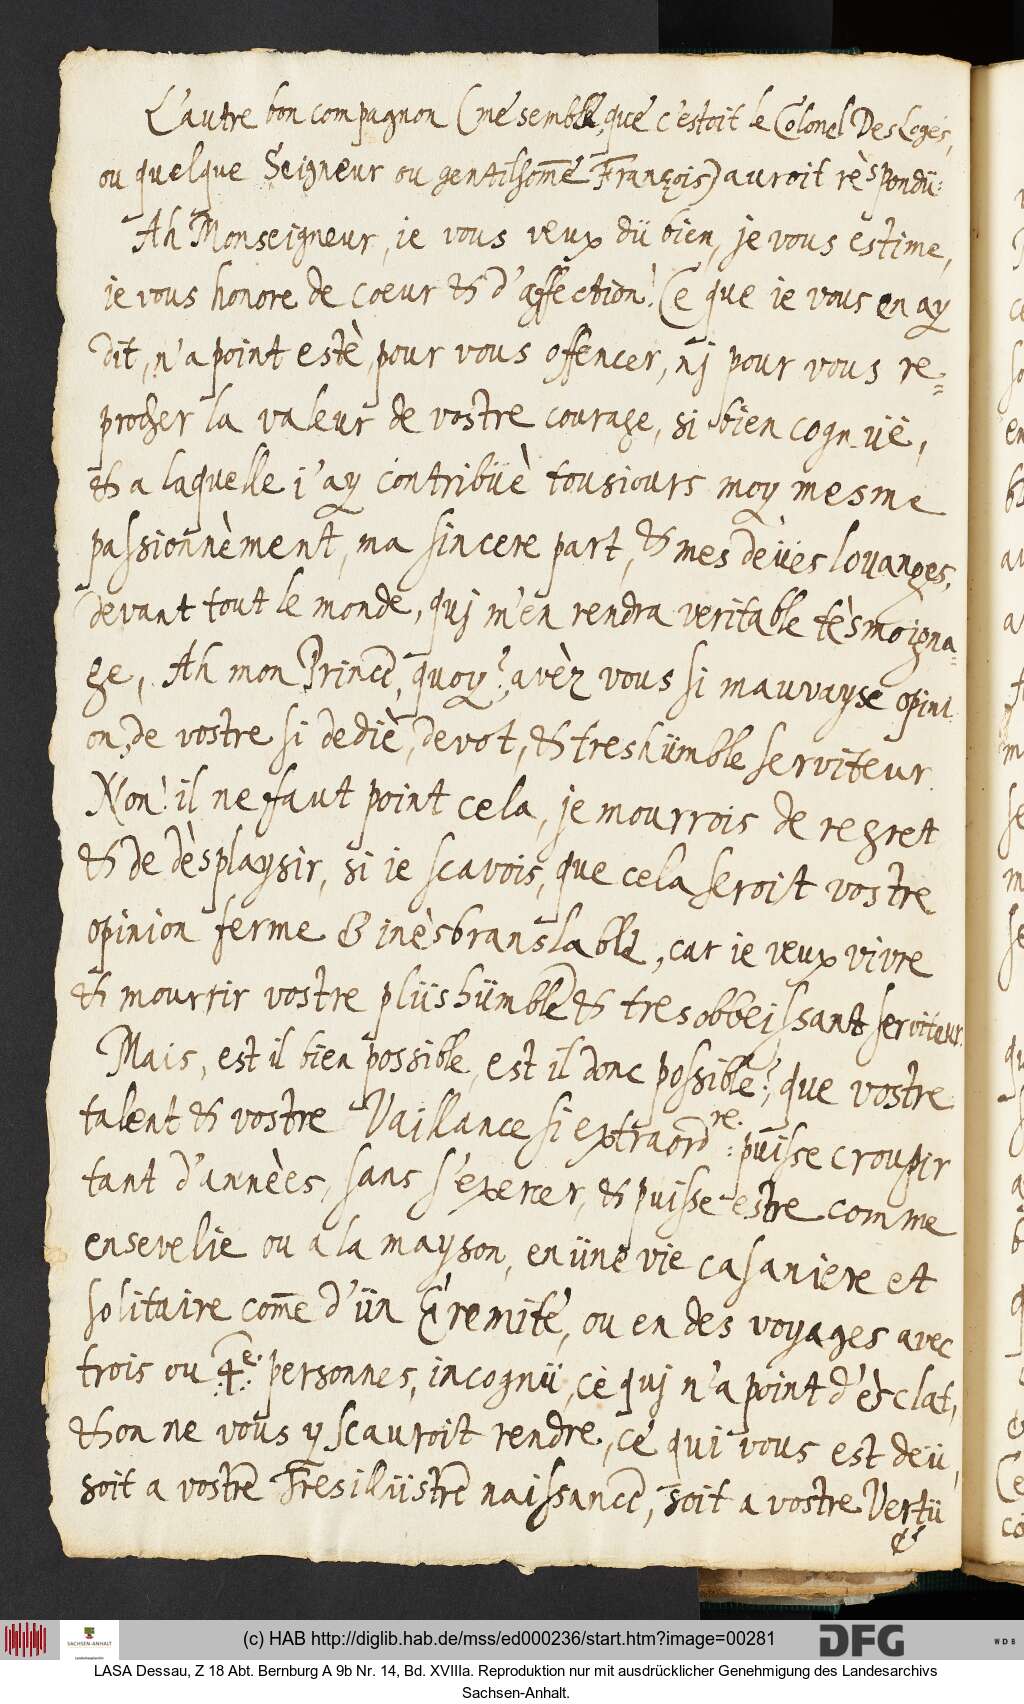 L'autre bon compagnon (me semble, que c'estoit le Colonel Des Loges,
ou quelque Seigneur ou gentilhom̃e François) auroit rèspondü:
Ah Monseigneur, je vous veux dü bien, je vous estime,
je vous honore de coeur & d'affection! Ce que ie vous en ay
dit, n'a point estè, pour vous offencer, nj pour vous re-
procher la valeur de vostre courage, si bien cognuë,
& a laquelle j'ay contribüè tousiours moy mesme
passionnèment, ma sincere part, & mes deües louanges,
devant tout le monde, quj m'en rendra veritable tèsmoigna-
ge, Ah mon Prince, quoy? avèz vous si mauvayse opini
on, de vostre si dediè, devot, & treshümble serviteur.
Non! il ne faut point cela, je mourrois de regret
& de dèsplaysir, si ie scavois, que cela seroit vostre
opinion ferme & inèsbranslable, car ie veux vivre
& mourrir vostre plüshümble & tresobbeissant serviteur.
Mais, est il bien possible, est il donc possible?, que vostre
talent & vostre Vaillance si extraordre: puisse croupir
tant d'annèes, sans s'exercer, & puisse estre comme
ensevelie ou a la mayson, en üne vie casaniere et
solitaire com̃e d'ün Eremite, ou en des voyages avec
trois ou 4e. personnes, incognü, ce quj n'a point d'èsclat,
& on ne vous y scauroit rendre, ce qui vous est deü,
soit a vostre Tresillüstre naissance, soit a vostre Vertü
&
(c) HAB http://diglib.hab.de/mss/ed000236/start.htm?image=00281
SACHSEN-ANHALT
DFG
WDB
LASA Dessau, Z 18 Abt. Bernburg A 9b Nr. 14, Bd. XVIIIa. Reproduktion nur mit ausdrücklicher Genehmigung des Landesarchivs
Sachsen-Anhalt.